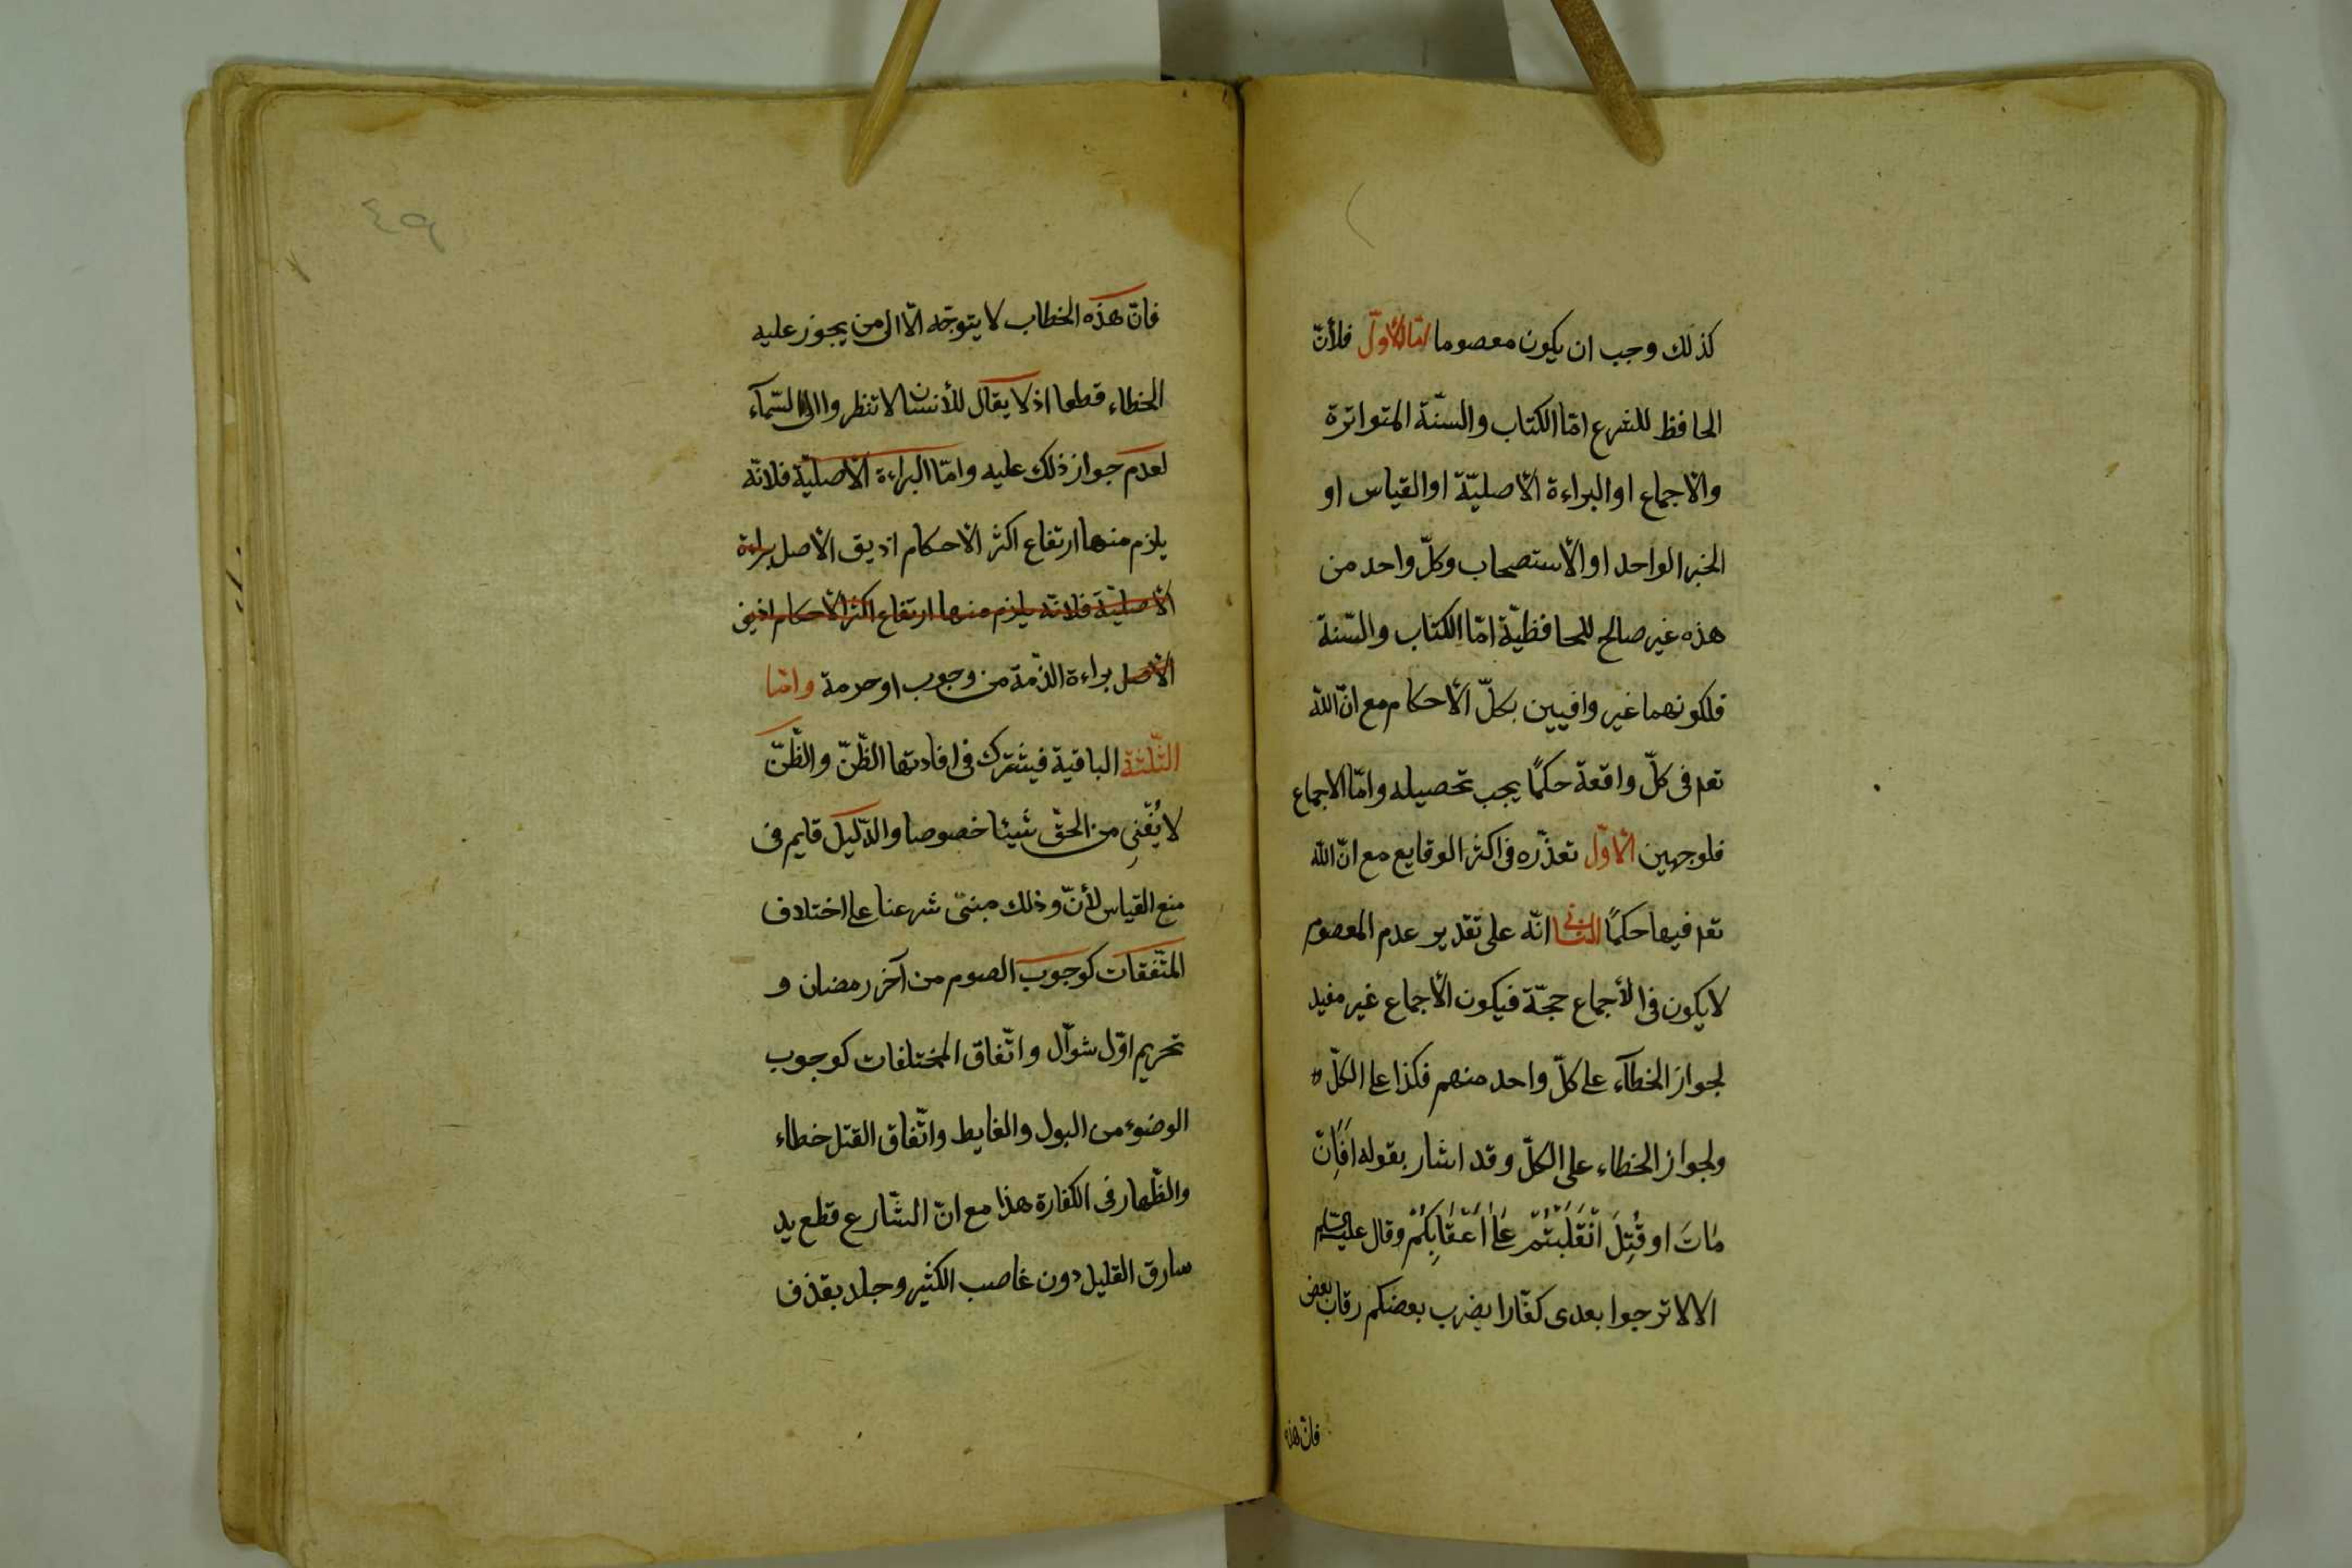 كذلك وجب ان يكون معصوما امّا الأوّل فلأنّ
الحافظ للشرع امّا الكتاب والسنّة المتواترة
والاجماع او البراءة الأصليّة او القياس او
الخبر الواحد او الأستصحاب وكلّ واحد من
هذه غير صالح للمحافظيّة امّا الكتاب والسّنة
فلكونهما غير وافيين بكلّ الأحكام مع انّ الله
تعم فى كلّ واقعة حكمًا يجب تحصيله وامّا الاجماع
فلوجهين الأوّل تعذّره فى اكثر الوقايع مع انّ الله
تعم فيها حكمًا الثانى انّه على تقدير عدم المعصوم
لا يكون فى الأجماع حجّة فيكون الأجماع غير مفيد
لجواز الخطآء على كلّ واحد منهم فكذا على الكلّ
ولجواز الخطاء على الكلّ وقد اشار بقوله افَاِنّ
مٰاتَ او قُتِلَ انْقَلَبْتُمْ عَلىٰ اَعْقٰابِكُمْ وقال عليه السّلم
الا لا ترجوا بعدى كفّارا يضرب بعضكم رقاب بعض
فانّ هذه
٤٩
فانّ هذه الخطاب لا يتوجّه الّا الى من يجوز عليه
الخطاء قطعا اذ لا يقال للأنسان لا تنظروا الى السّمآء
لعدم جواز ذلك عليه وامّا البراءة الأصليّة فلانّه
يلزم منها ارتفاع اكثر الأحكام اذ يق الأصل براءة
الأصليّة فلانّه يلزم منها ارتفاع اكثر الأحكام اذ يق
الأصل براءة الذّمة من وجوب او حرمة وامّا
الثّلثة الباقية فيشترك فى افادتها الظّنّ والظّنّ
لا يُغْنِى من الحقّ شيئا خصوصا والدّليل قايم فى
منع القياس لأنّ وذلك مبنىّ شرعنا على اختلاف
المتّفقات كوجوب الصوم من آخر رمضان و
تحريم اوّل شوّال واتّفاق المختلفات كوجوب
الوضوء من البول والغايط واتّفاق القتل خطاء
والظّهار فى الكفارة هذا مع انّ الشّارع قطع يد
سارق القليل دون غاصب الكثير وجلد بقذف